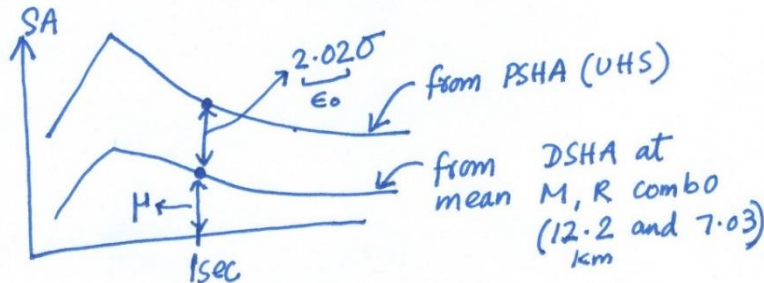 SA
2.02σ
ε₀
from PSHA (UHS)
from DSHA at
mean M, R combo
(12.2 and 7.03)
km
μ
1sec